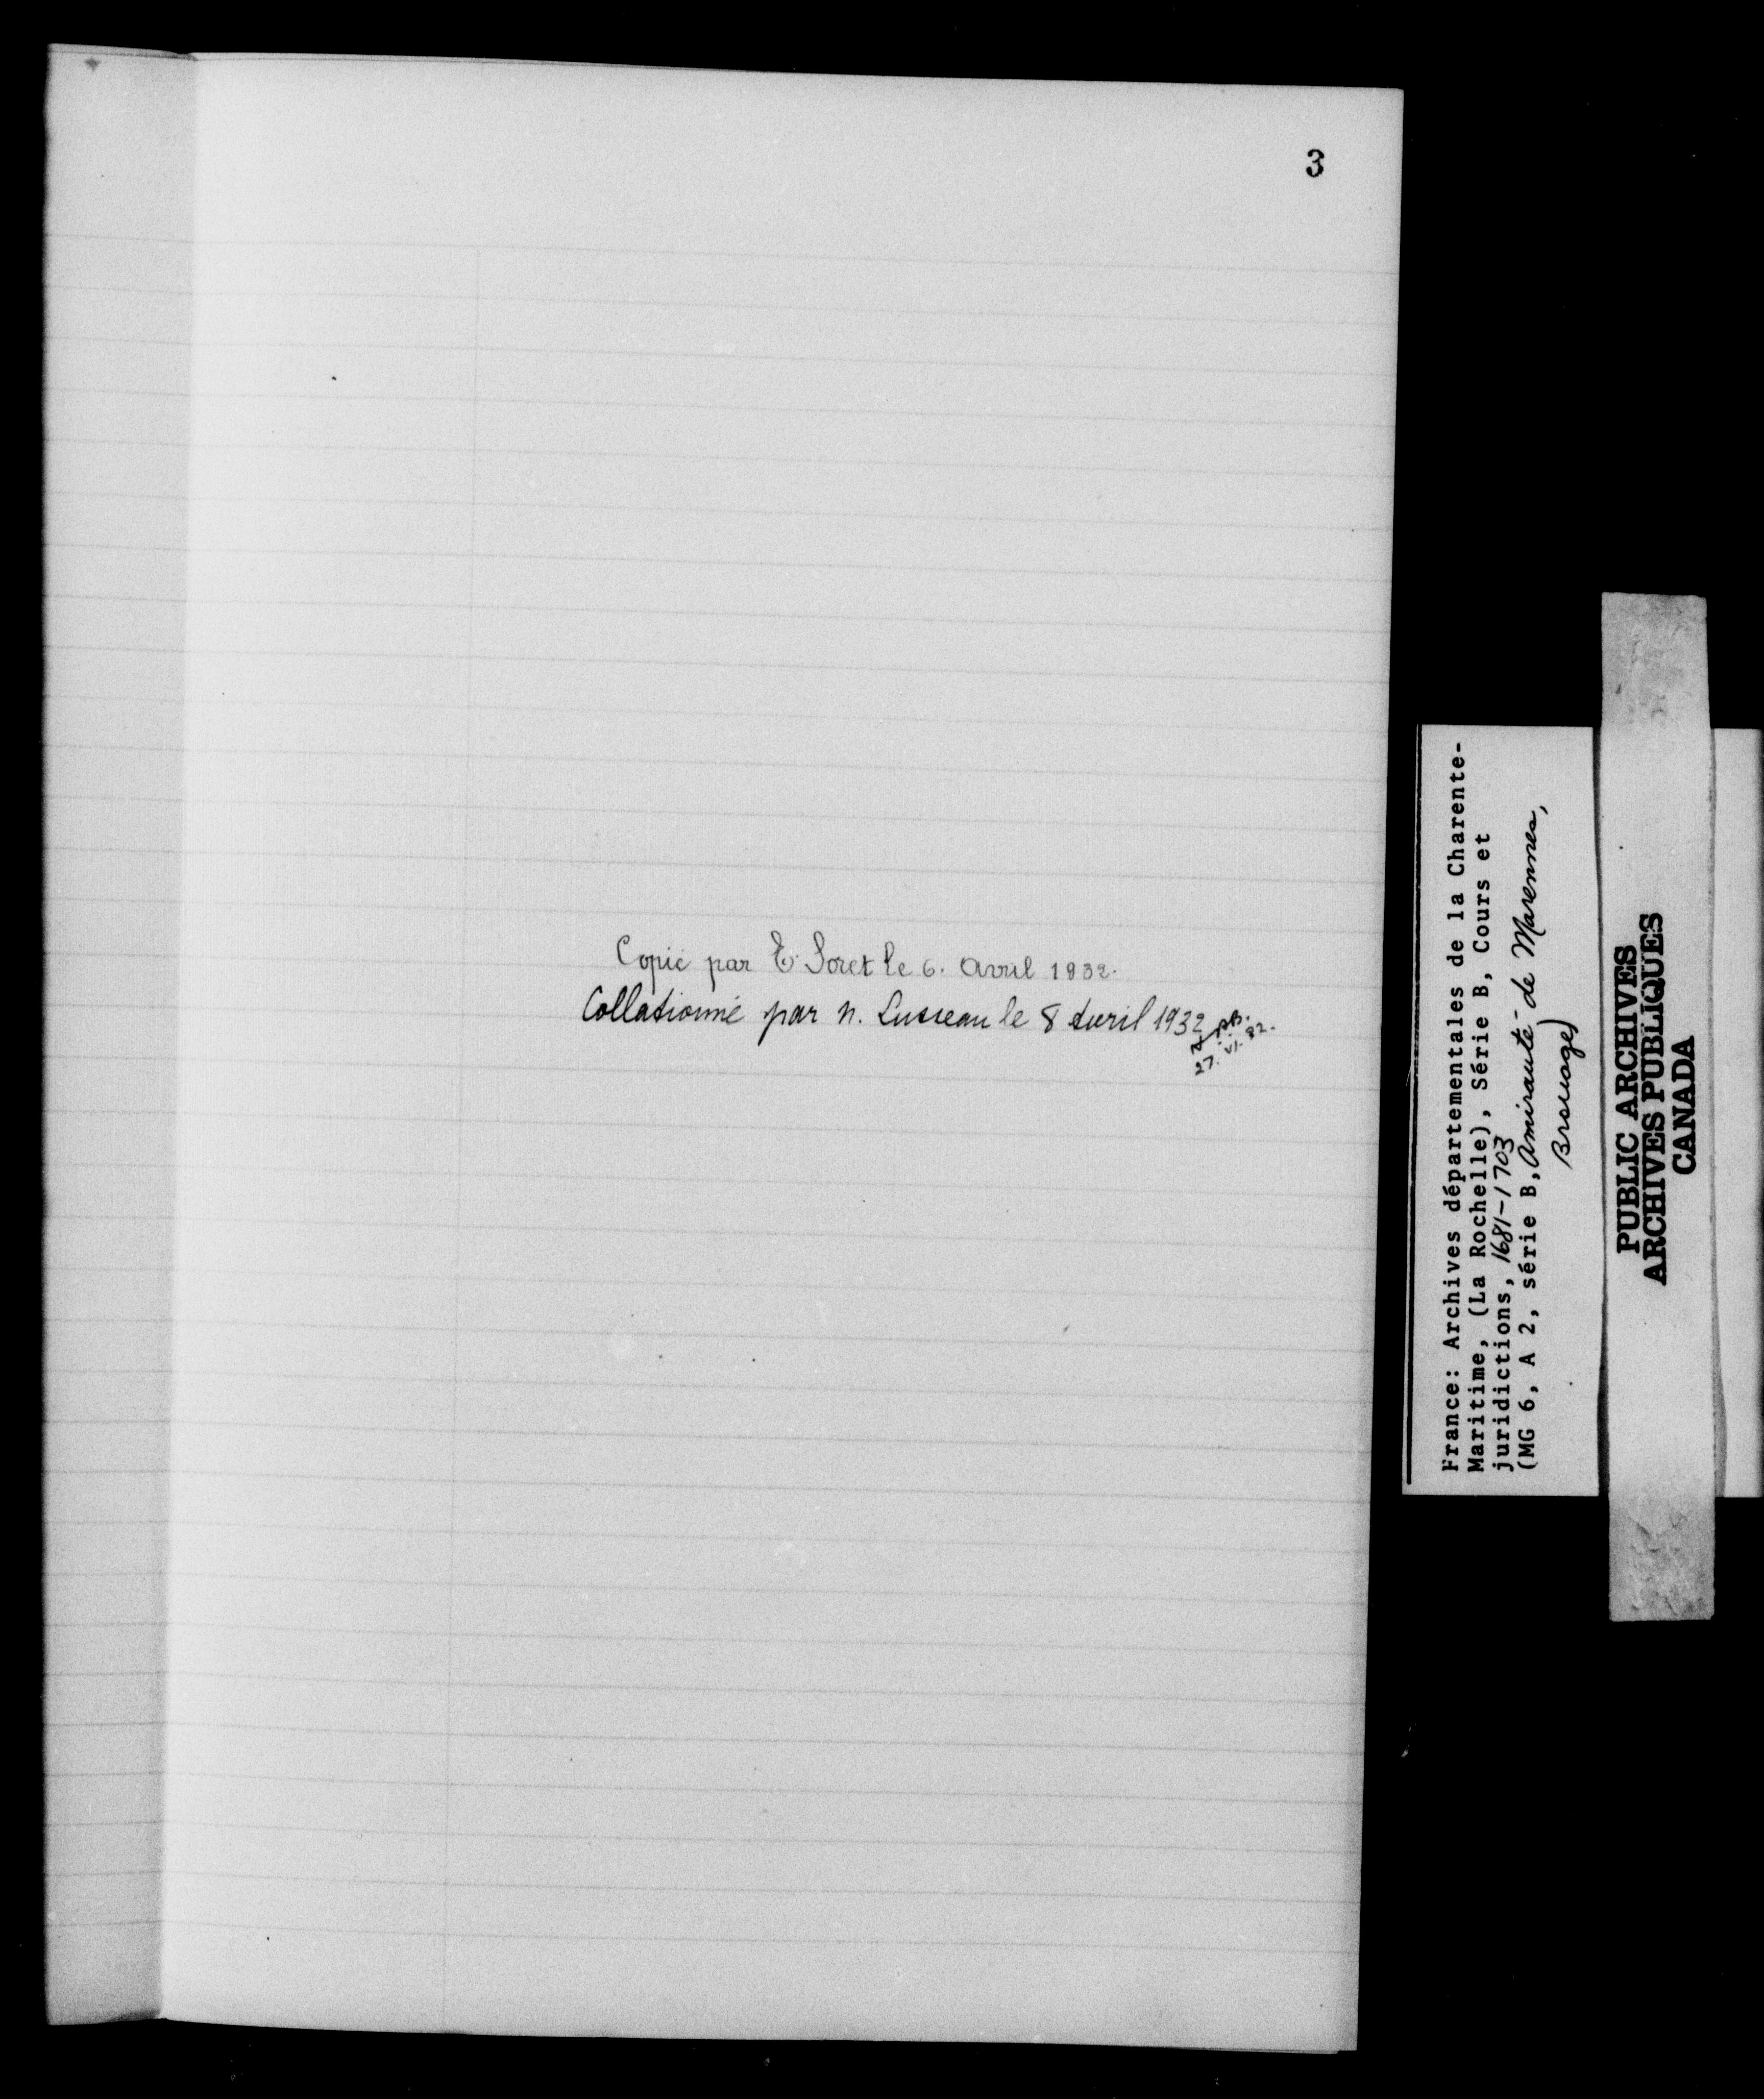 3
Copié par E. Soret le 6. Avril 1932.
Collationné par N. Lusseau le 8 Avril 1932
27. VI. 32.
France: Archives départementales de la Charente-
Maritime, (La Rochelle), Série B, Cours et
juridictions, 1681-1703
(MG 6, A 2, série B, Amirauté de Marennes,
Brouage)
PUBLIC ARCHIVES
ARCHIVES PUBLIQUES
CANADA